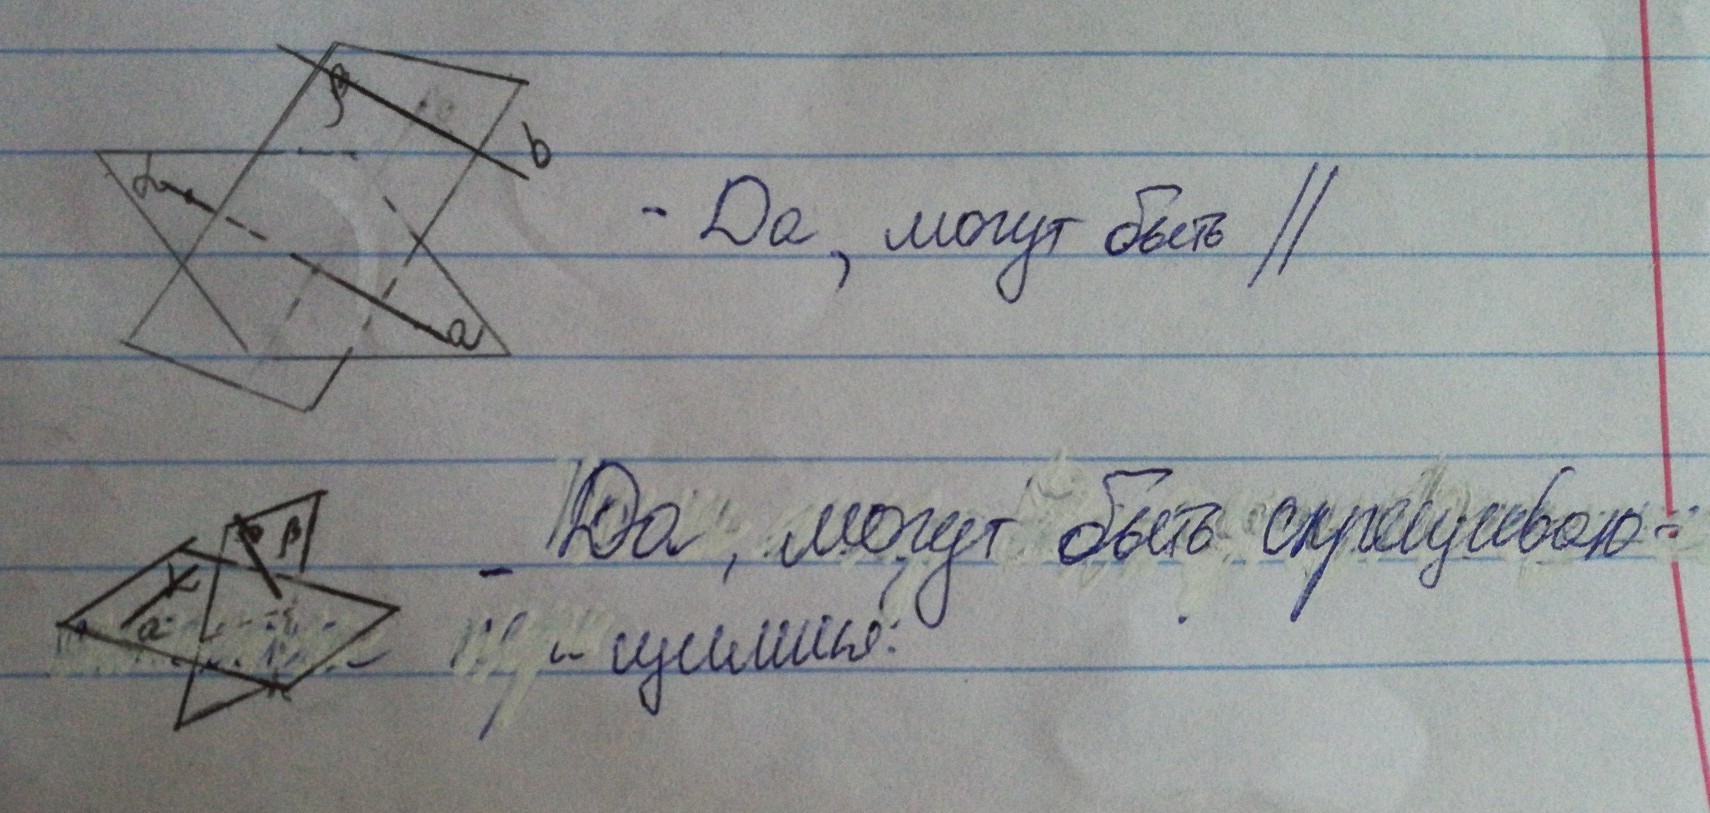 β
b
α
- Да, могут быть //
a
β
- Да, могут быть скрещиваю-
α
a
- щимися.